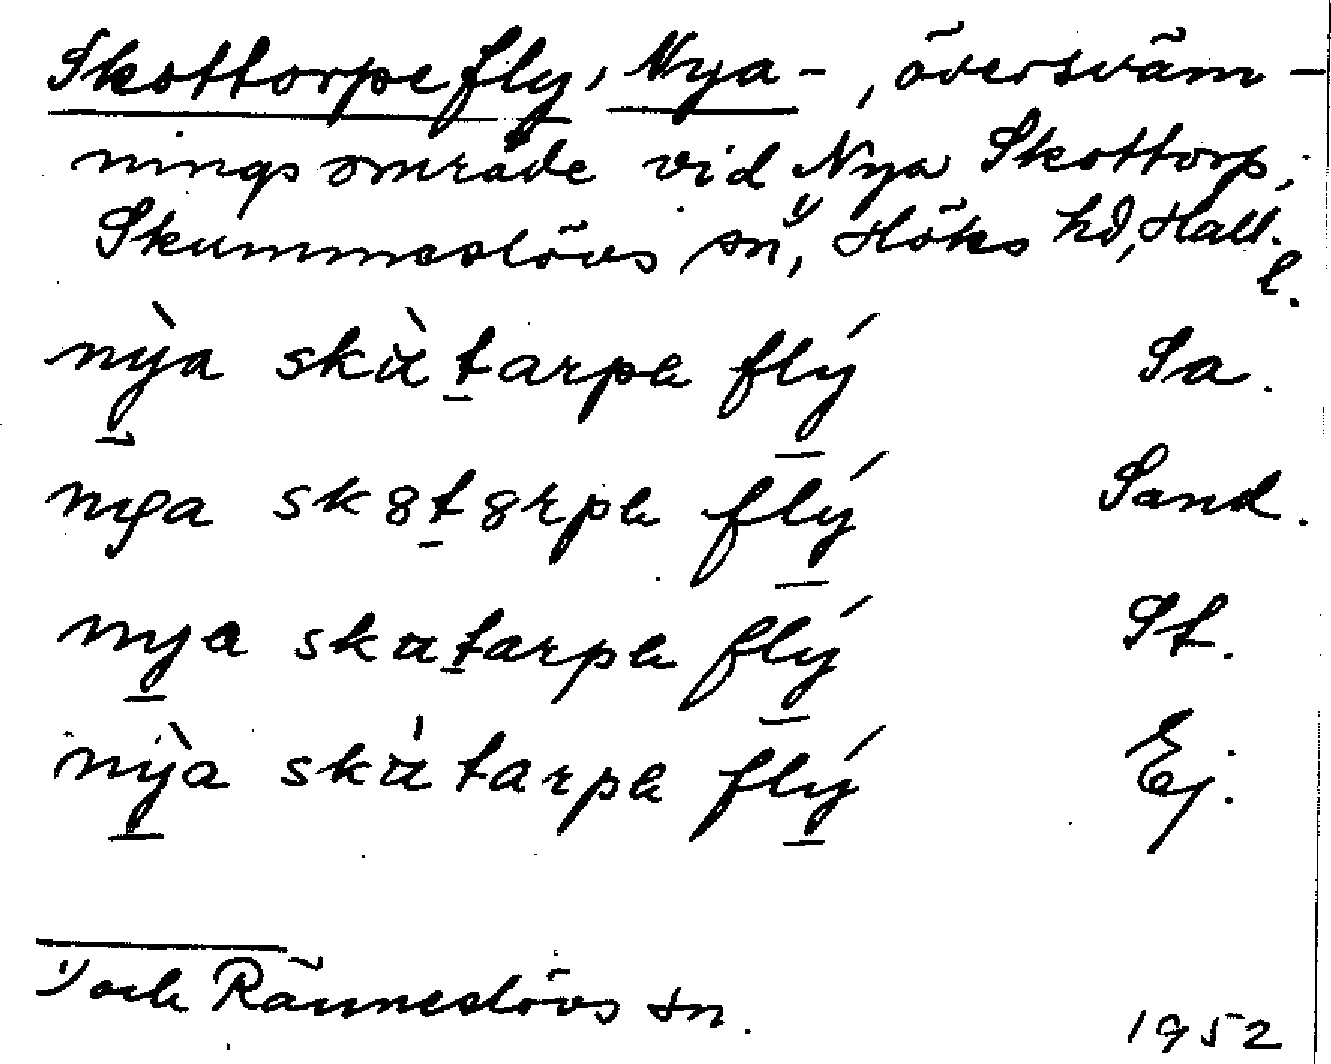 Skottorpefly, Nya-, översväm-
ningsområde vid Nya Skottorp,
Skummeslövs sn,¹⁾ Höks hd, Hall. l.
nỳa skàtarpe flý Sa.
nya sk8t8rpe flý Sand.
nya skatarpe flý St.
nỳa skàtarpe flý Ej.
¹⁾ och Ränneslövs sn.
1952